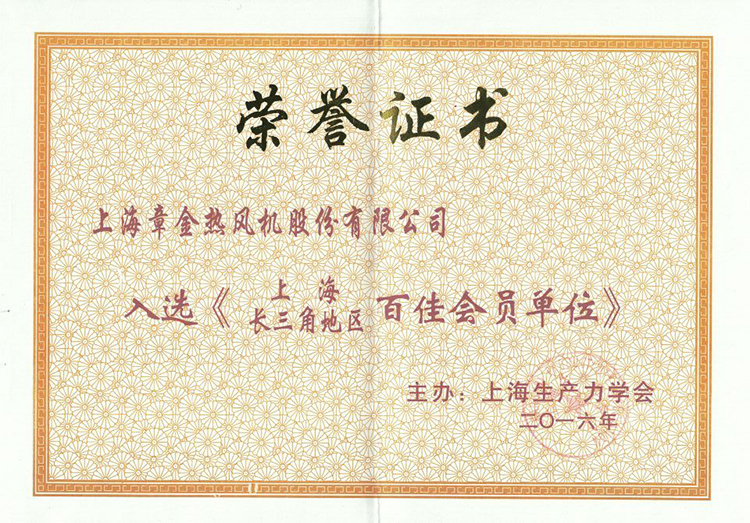 荣誉证书
上海章金热风机股份有限公司
入选《上海长三角地区百佳会员单位》
主办：上海生产力学会
二〇一六年